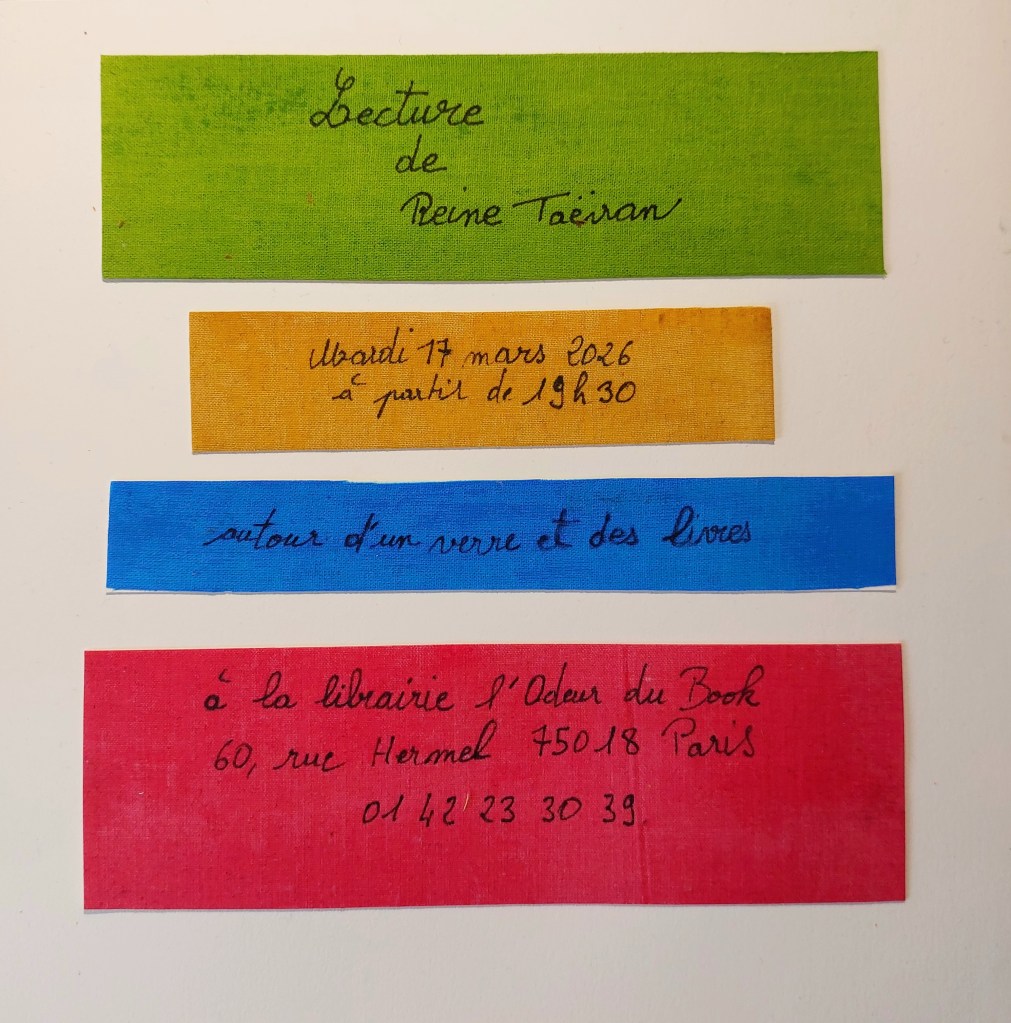 Lecture
de
Reine Taëiran
Mardi 17 mars 2026
à partir de 19h30
autour d'un verre et des livres
à la librairie l'Odeur du Book
60, rue Hermel 75018 Paris
01 42 23 30 39